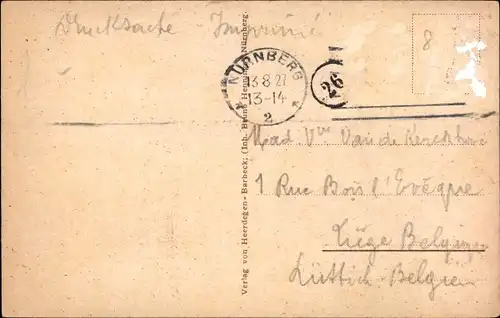 Drucksache - Imprimé
8
NÜRNBERG
13.8.27
13-14
2
26
Verlag von Heerdegen-Barbeck; (Inh. Bruno Hennig), Nürnberg.
Mad Vve Van de Kerckhove
1 Rue Bois l'Evêque
Liège Belgique
Lüttich-Belgien